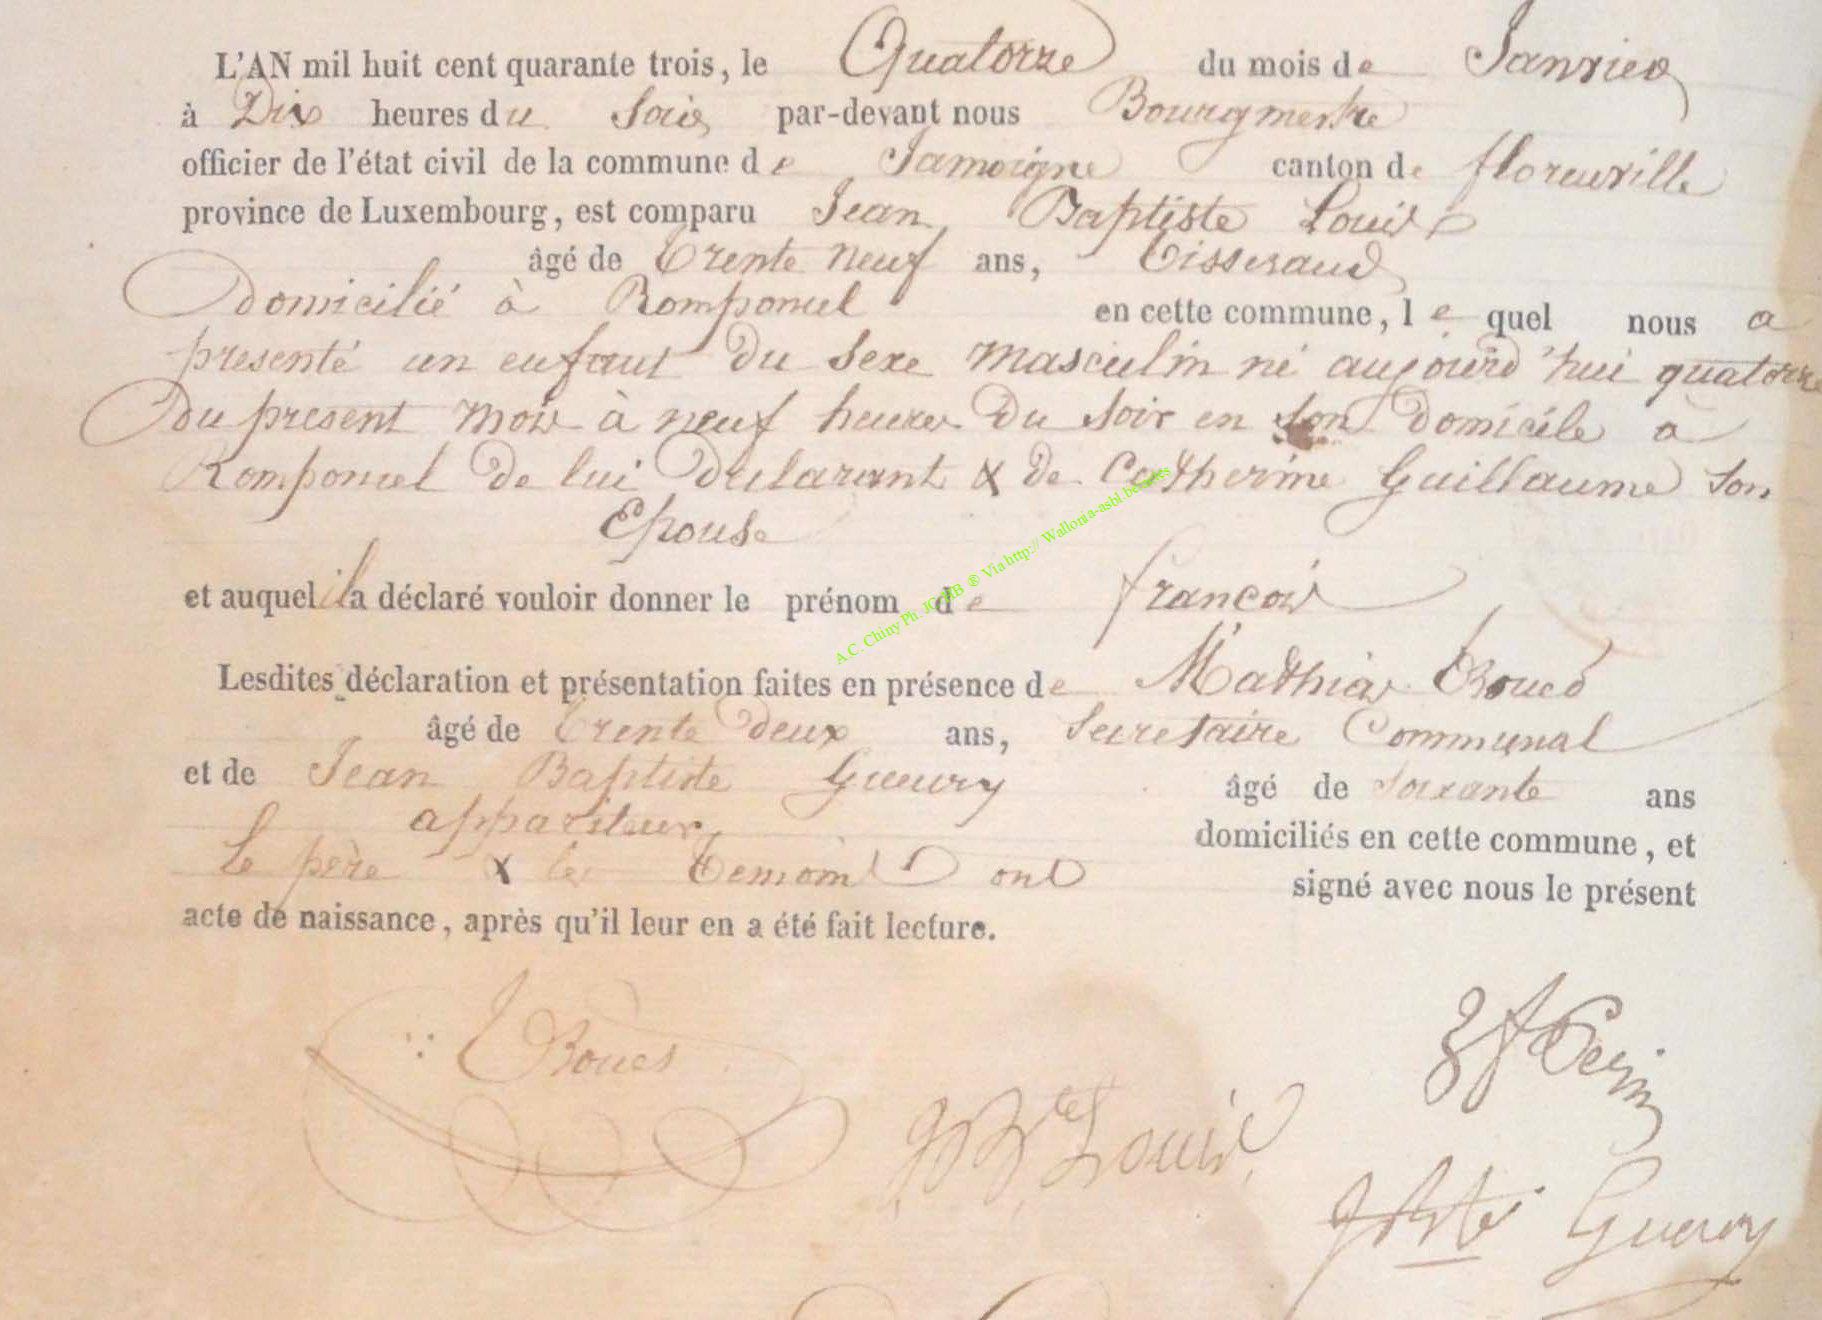 L'AN mil huit cent quarante trois, le Quatorze du mois de Janvier
à Dix heures du Soir par-devant nous Bourgmestre
officier de l'état civil de la commune de Jamoigne canton de florenville
province de Luxembourg, est comparu Jean Baptiste Louis
âgé de Trente neuf ans, Tisserand
Domicilié à Romponcel en cette commune, le quel nous a
presenté un enfant du sexe masculin né aujourd'hui quatorze
Du present mois à neuf heures Du soir en son Domicile a
Romponcel De lui Déclarant & de Catherine Guillaume son
Epouse
et auquel il a déclaré vouloir donner le prénom de francois
Lesdites déclaration et présentation faites en présence de Mathias
âgé de Trente Deux ans, Secretaire Communal
et de Jean Baptiste Gueury âgé de soixante ans
appariteur, domiciliés en cette commune, et
le père & les Temoins ont signé avec nous le présent
acte de naissance, après qu'il leur en a été fait lecture.
JBte Louis
JBte Gueury
A.C. Chiny Ph. JC HB ® Via http:// Wallonia-asbl.be